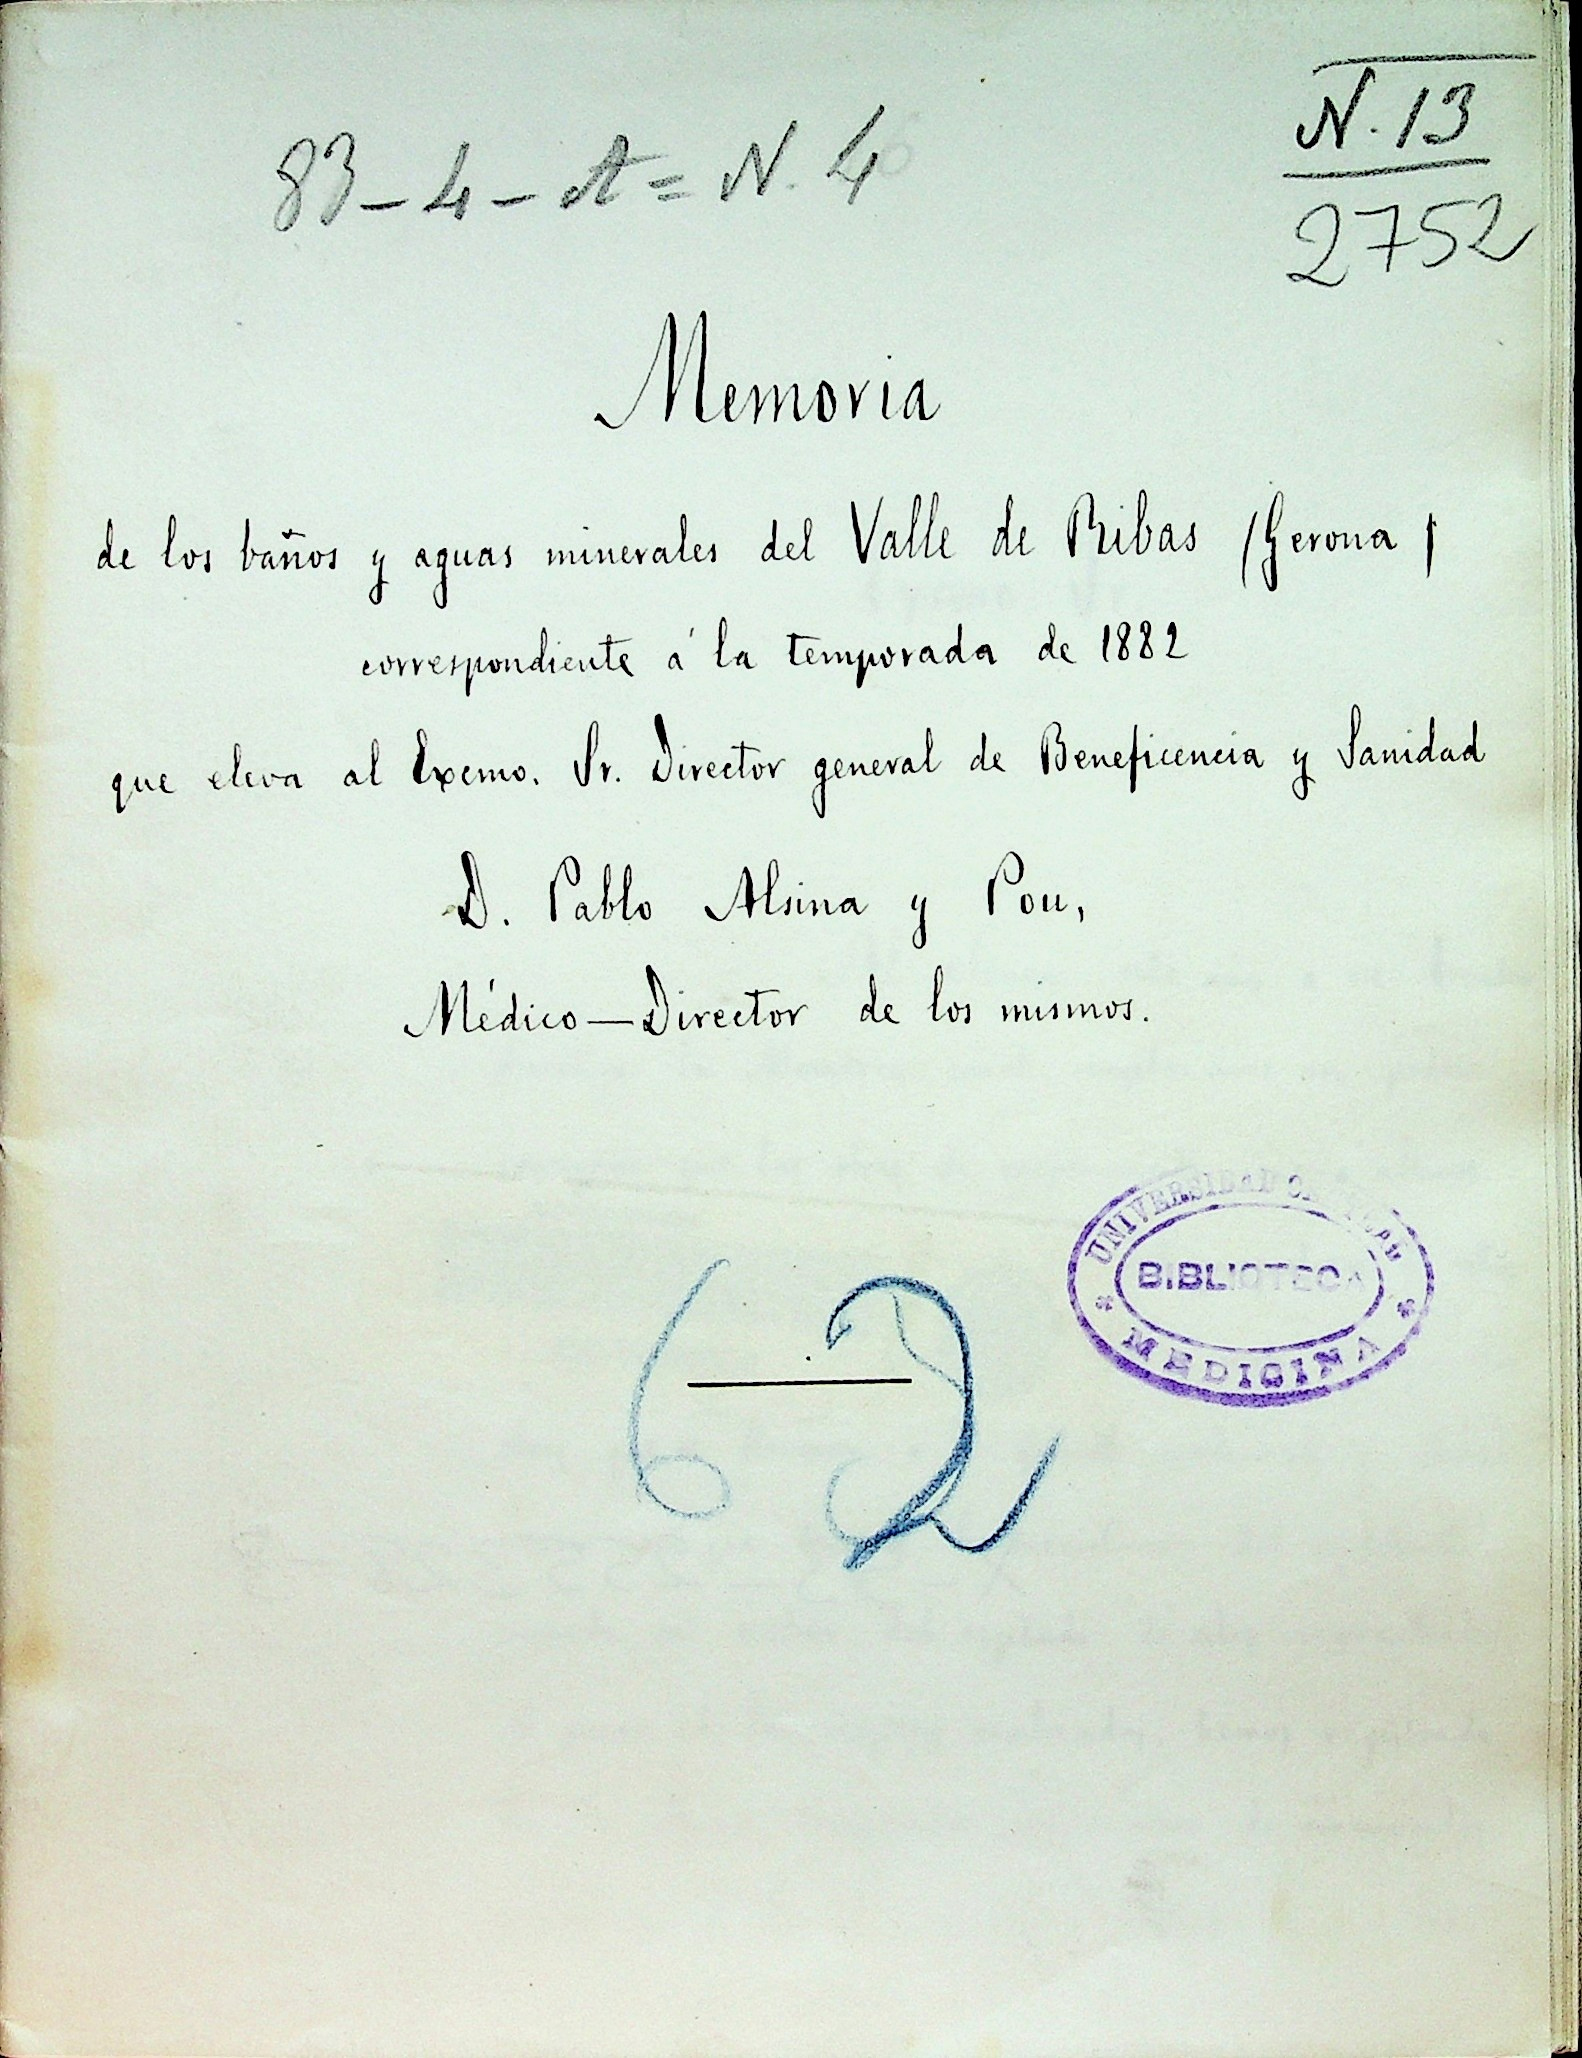 N. 13
83-4-A=N. 4
2752
Memoria
de los baños y aguas minerales del Valle de Ribas (Gerona)
correspondiente á la temporada de 1882
que eleva al Excmo. Sr. Director general de Beneficencia y Sanidad
D. Pablo Alsina y Pou,
Médico—Director de los mismos.
UNIVERSIDAD
BIBLIOTECA
MEDICINA
62